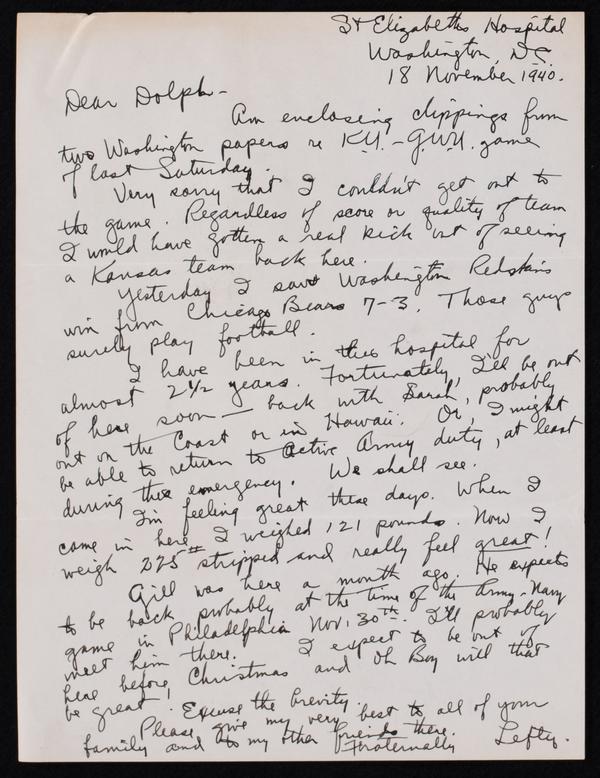 St Elizabeths Hospital
Washington, D.C.
18 November 1940.
Dear Dolph-
Am enclosing clippings from
two Washington papers re K.U.-G.W.U. game
of last Saturday.
Very sorry that I couldn't get out to
the game. Regardless of score or quality of team
I would have gotten a real kick out of seeing
a Kansas team back here.
Yesterday I saw Washington Redskins
win from Chicago Bears 7-3. Those guys
surely play football.
I have been in this hospital for
almost 2 1/2 years. Fortunately, I'll be out
of here soon — back with Sarah, probably
out on the Coast or in Hawaii. Or, I might
be able to return to active Army duty, at least
during this emergency. We shall see.
I'm feeling great these days. When I
came in here I weighed 121 pounds. Now I
weigh 225# stripped and really feel great!
Gill was here a month ago. He expects
to be back probably at the time of the Army-Navy
game in Philadelphia Nov. 30th. I'll probably
meet him there. I expect to be out of
here before Christmas and Oh Boy will that
be great.
Excuse the brevity.
Please give my very best to all of your
family and to my other friends there.
Fraternally
Lefty.